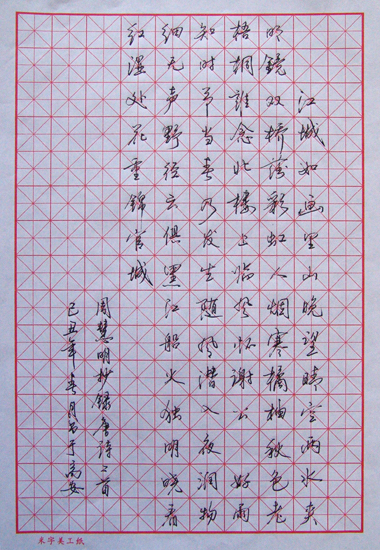 江城如画里山晚望晴空两水夹
明镜双桥落彩虹人烟寒橘柚秋色老
梧桐谁念北楼上临风怀谢公 好雨
知时节当春乃发生随风潜入夜润物
细无声野径云俱黑江船火独明晓看
红湿处花重锦官城
周慧明抄录唐诗二首
己丑年春月书于高安
米字美工纸